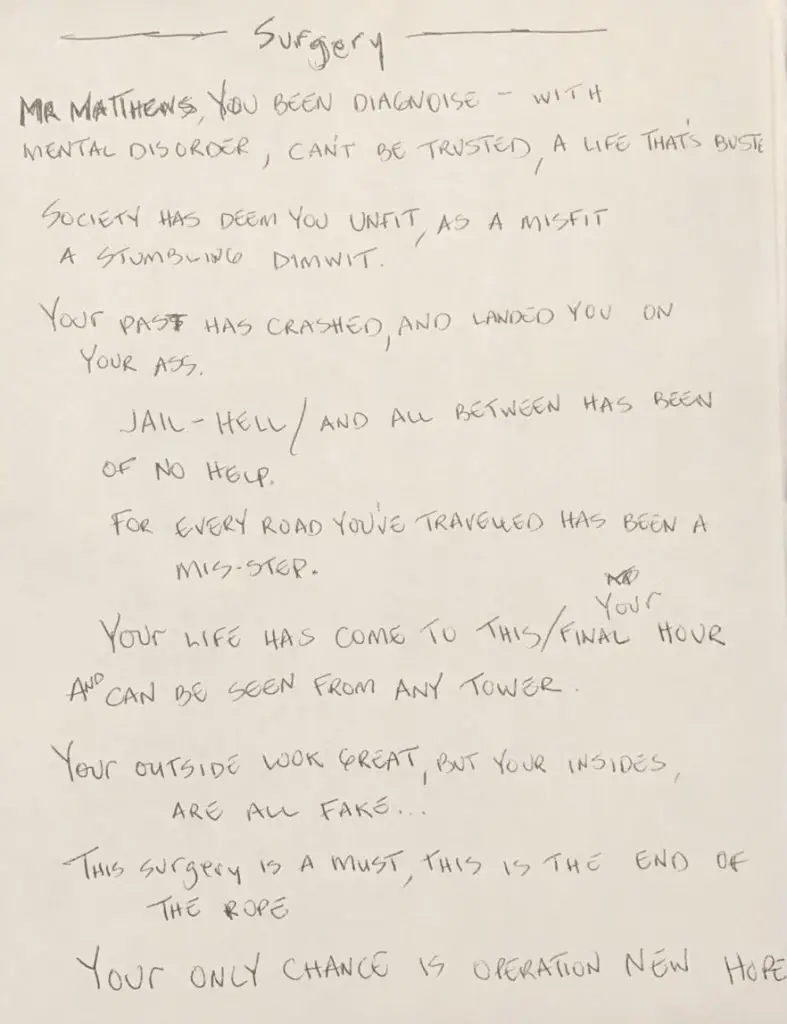 Surgery
MR MATTHEWS, YOU BEEN DIAGNOISE - WITH
MENTAL DISORDER, CAN'T BE TRUSTED, A LIFE THAT'S BUSTE
SOCIETY HAS DEEM YOU UNFIT, AS A MISFIT
A STUMBLING DIMWIT.
YOUR PAST HAS CRASHED, AND LANDED YOU ON
YOUR ASS.
JAIL - HELL / AND ALL BETWEEN HAS BEEN
OF NO HELP.
FOR EVERY ROAD YOU'VE TRAVELLED HAS BEEN A
MIS-STEP.
YOUR
YOUR LIFE HAS COME TO THIS / FINAL HOUR
AND CAN BE SEEN FROM ANY TOWER.
YOUR OUTSIDE LOOK GREAT, BUT YOUR INSIDES,
ARE ALL FAKE...
THIS SURGERY IS A MUST, THIS IS THE END OF
THE ROPE
YOUR ONLY CHANCE IS OPERATION NEW HOPE